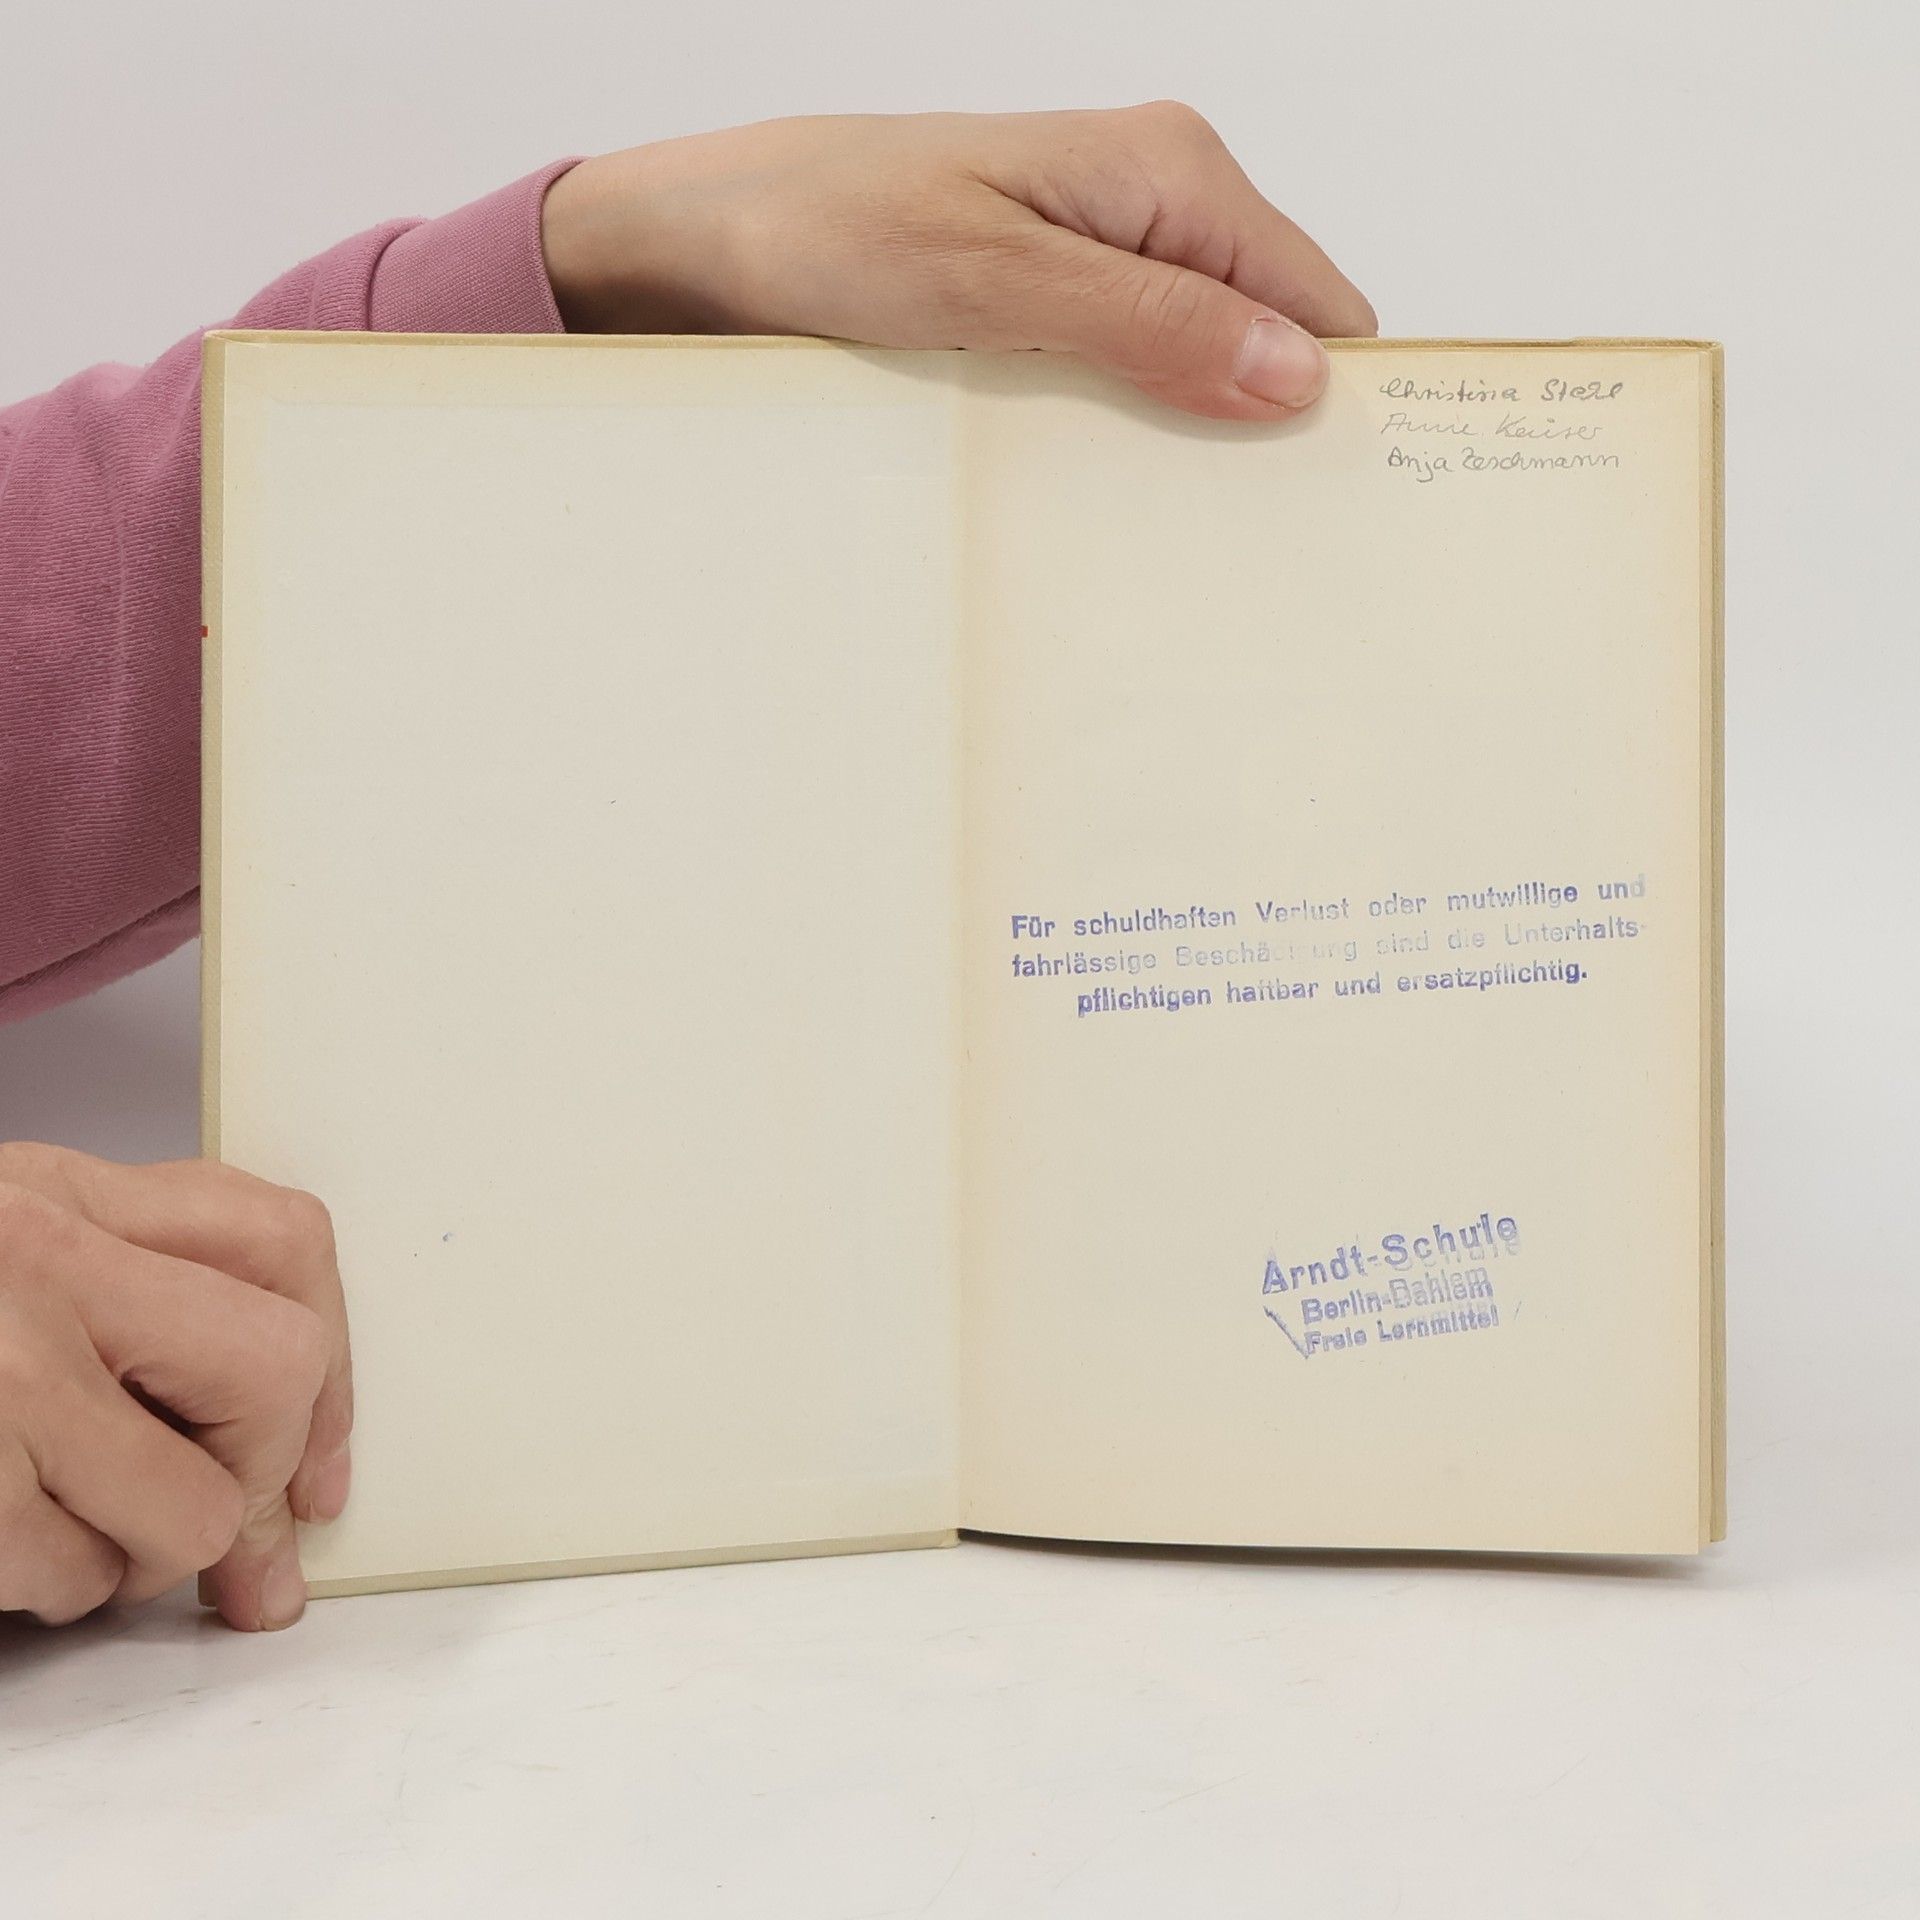 Christina Stahl
Anne Kaiser
Anja Zeschmann
Für schuldhaften Verlust oder mutwillige und
fahrlässige Beschädigung sind die Unterhalts-
pflichtigen haftbar und ersatzpflichtig.
Arndt-Schule
Berlin-Dahlem
Freie Lernmittel